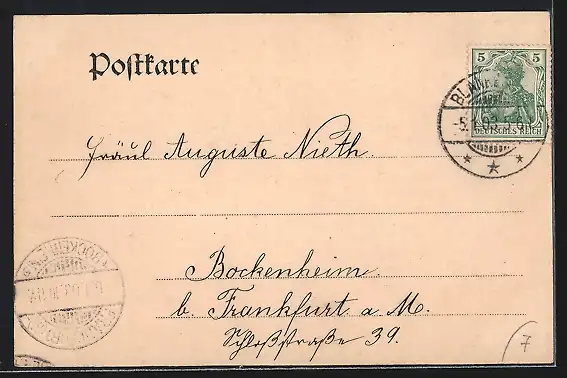 Postkarte
5 5
DEUTSCHES REICH
-5.1.03.
Fräul Auguste Nieth.
Bockenheim
b. Frankfurt a. M.
Schloßstraße 39.
7